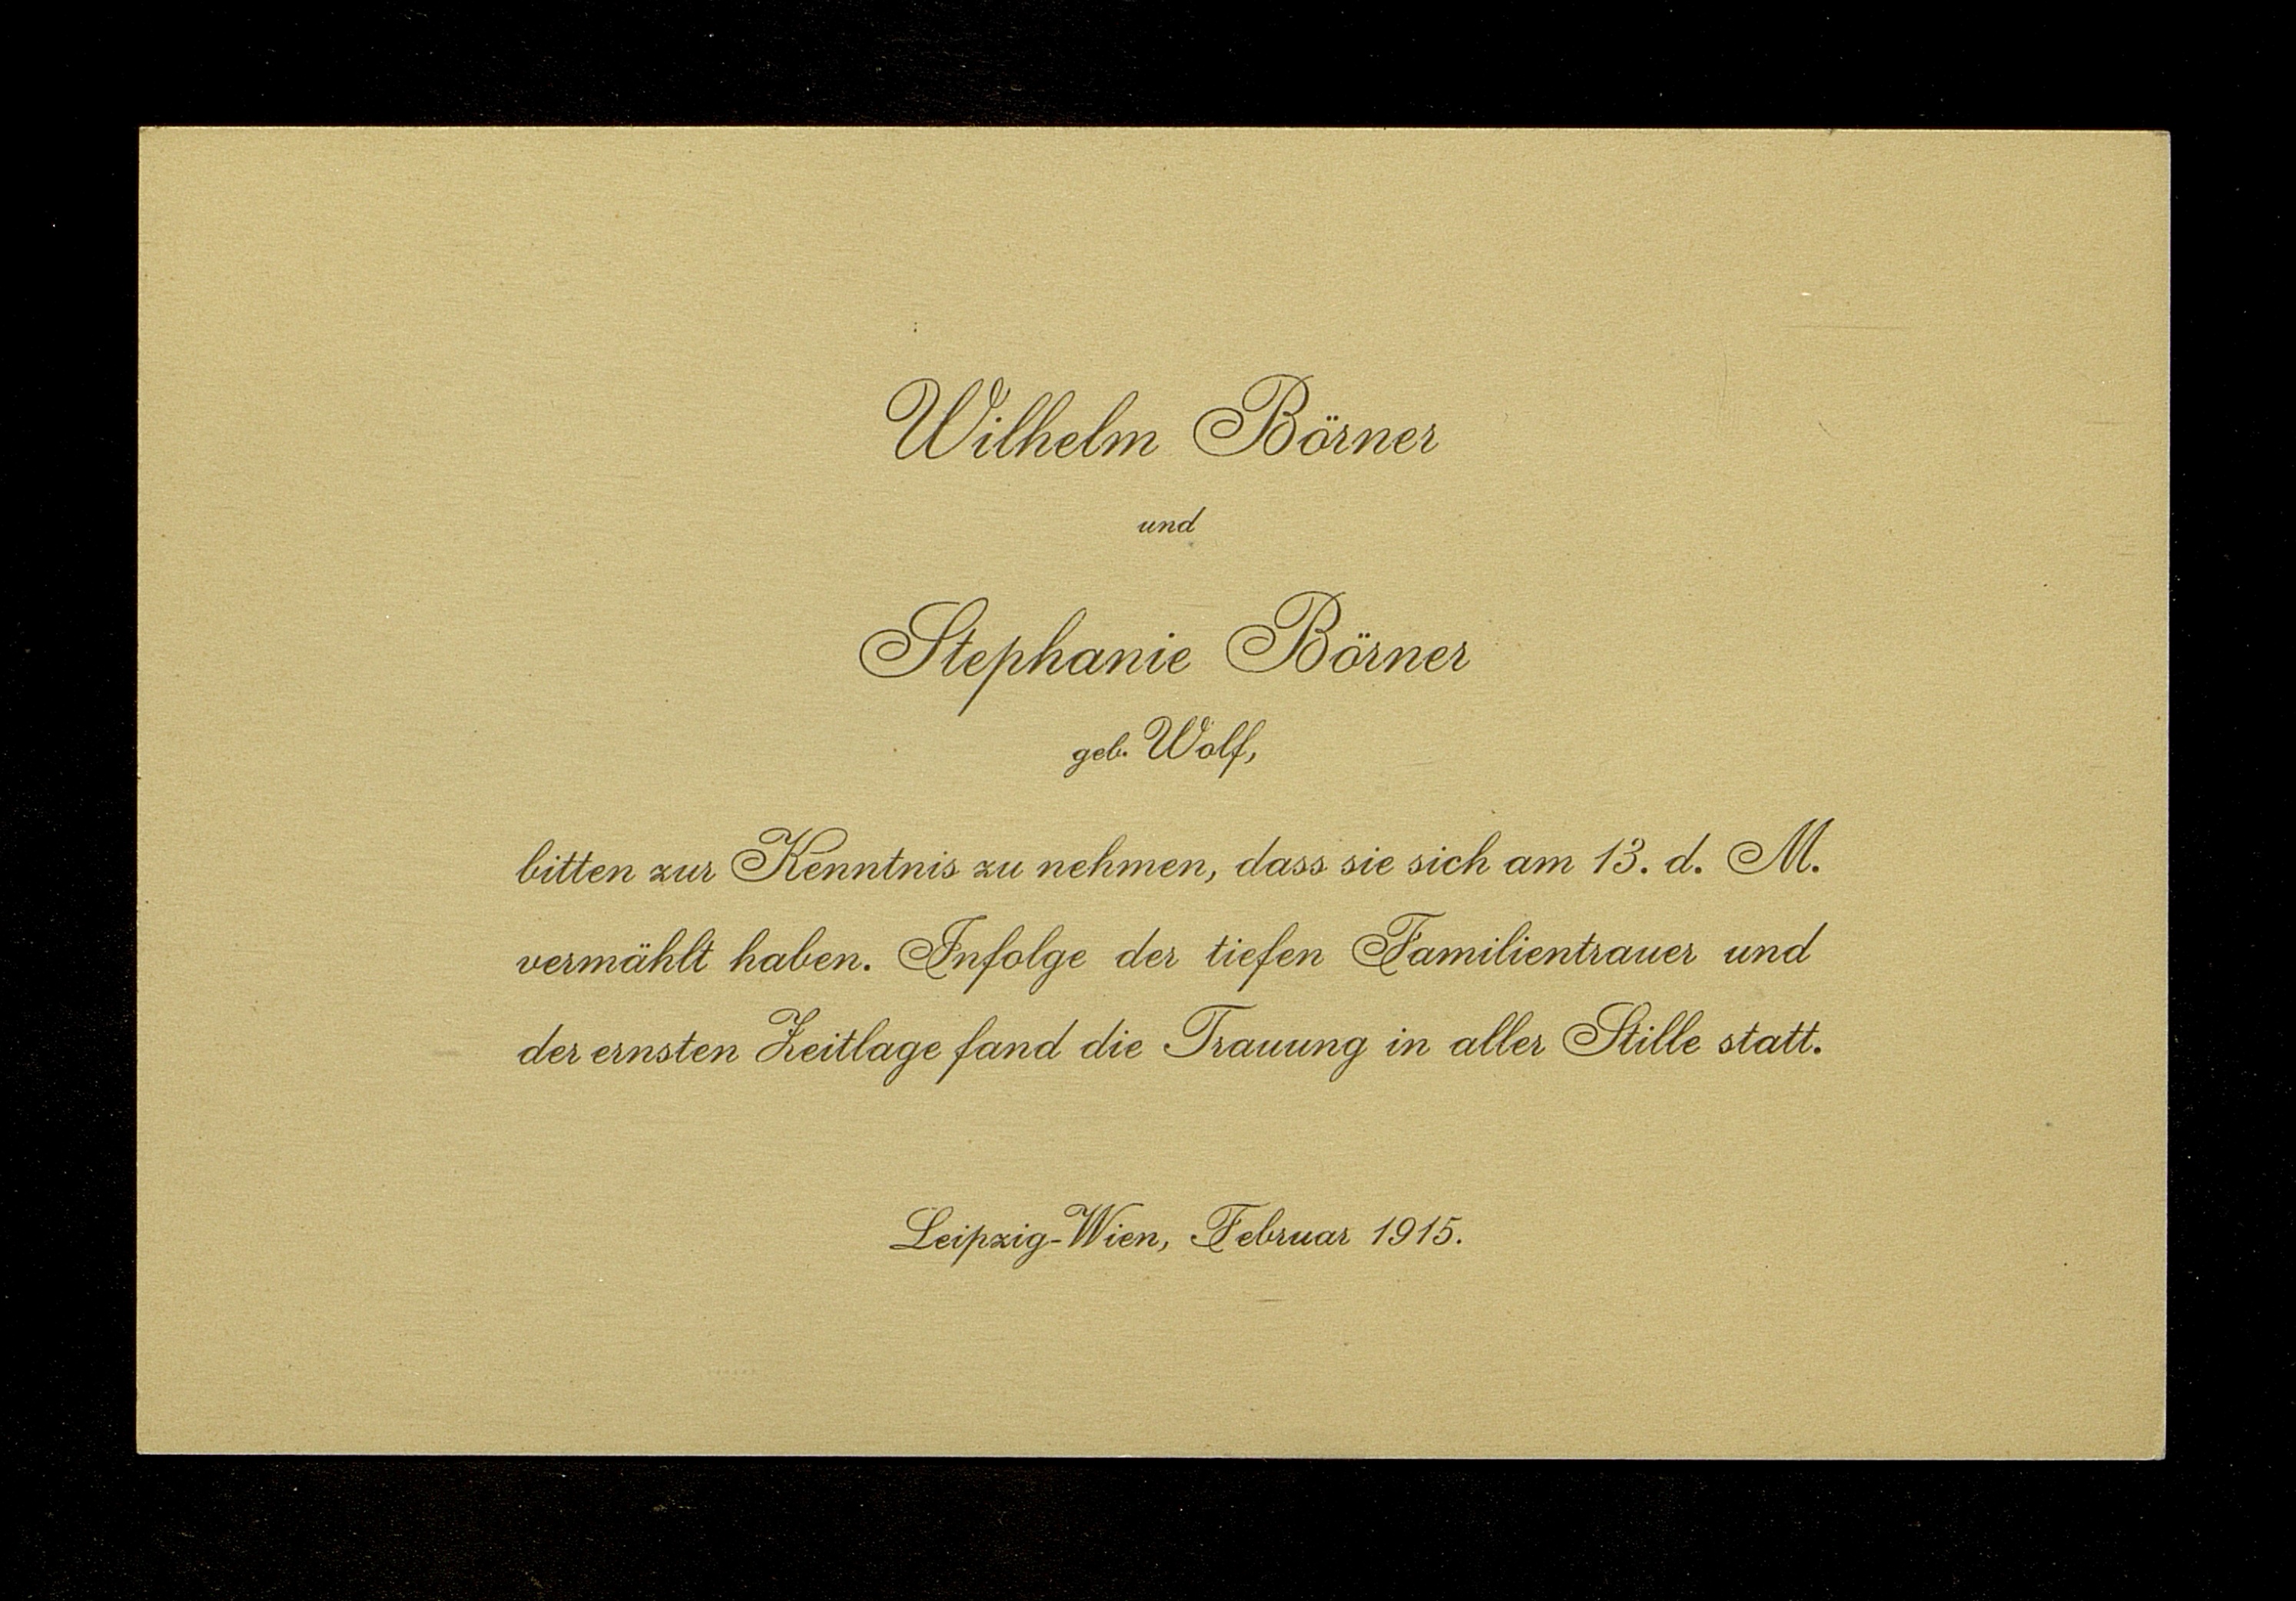 Wilhelm Börner
und
Stephanie Börner
geb. Wolf,
bitten zur Kenntnis zu nehmen, dass sie sich am 13. d. M.
vermählt haben. Infolge der tiefen Familientrauer und
der ernsten Zeitlage fand die Trauung in aller Stille statt.
Leipzig-Wien, Februar 1915.